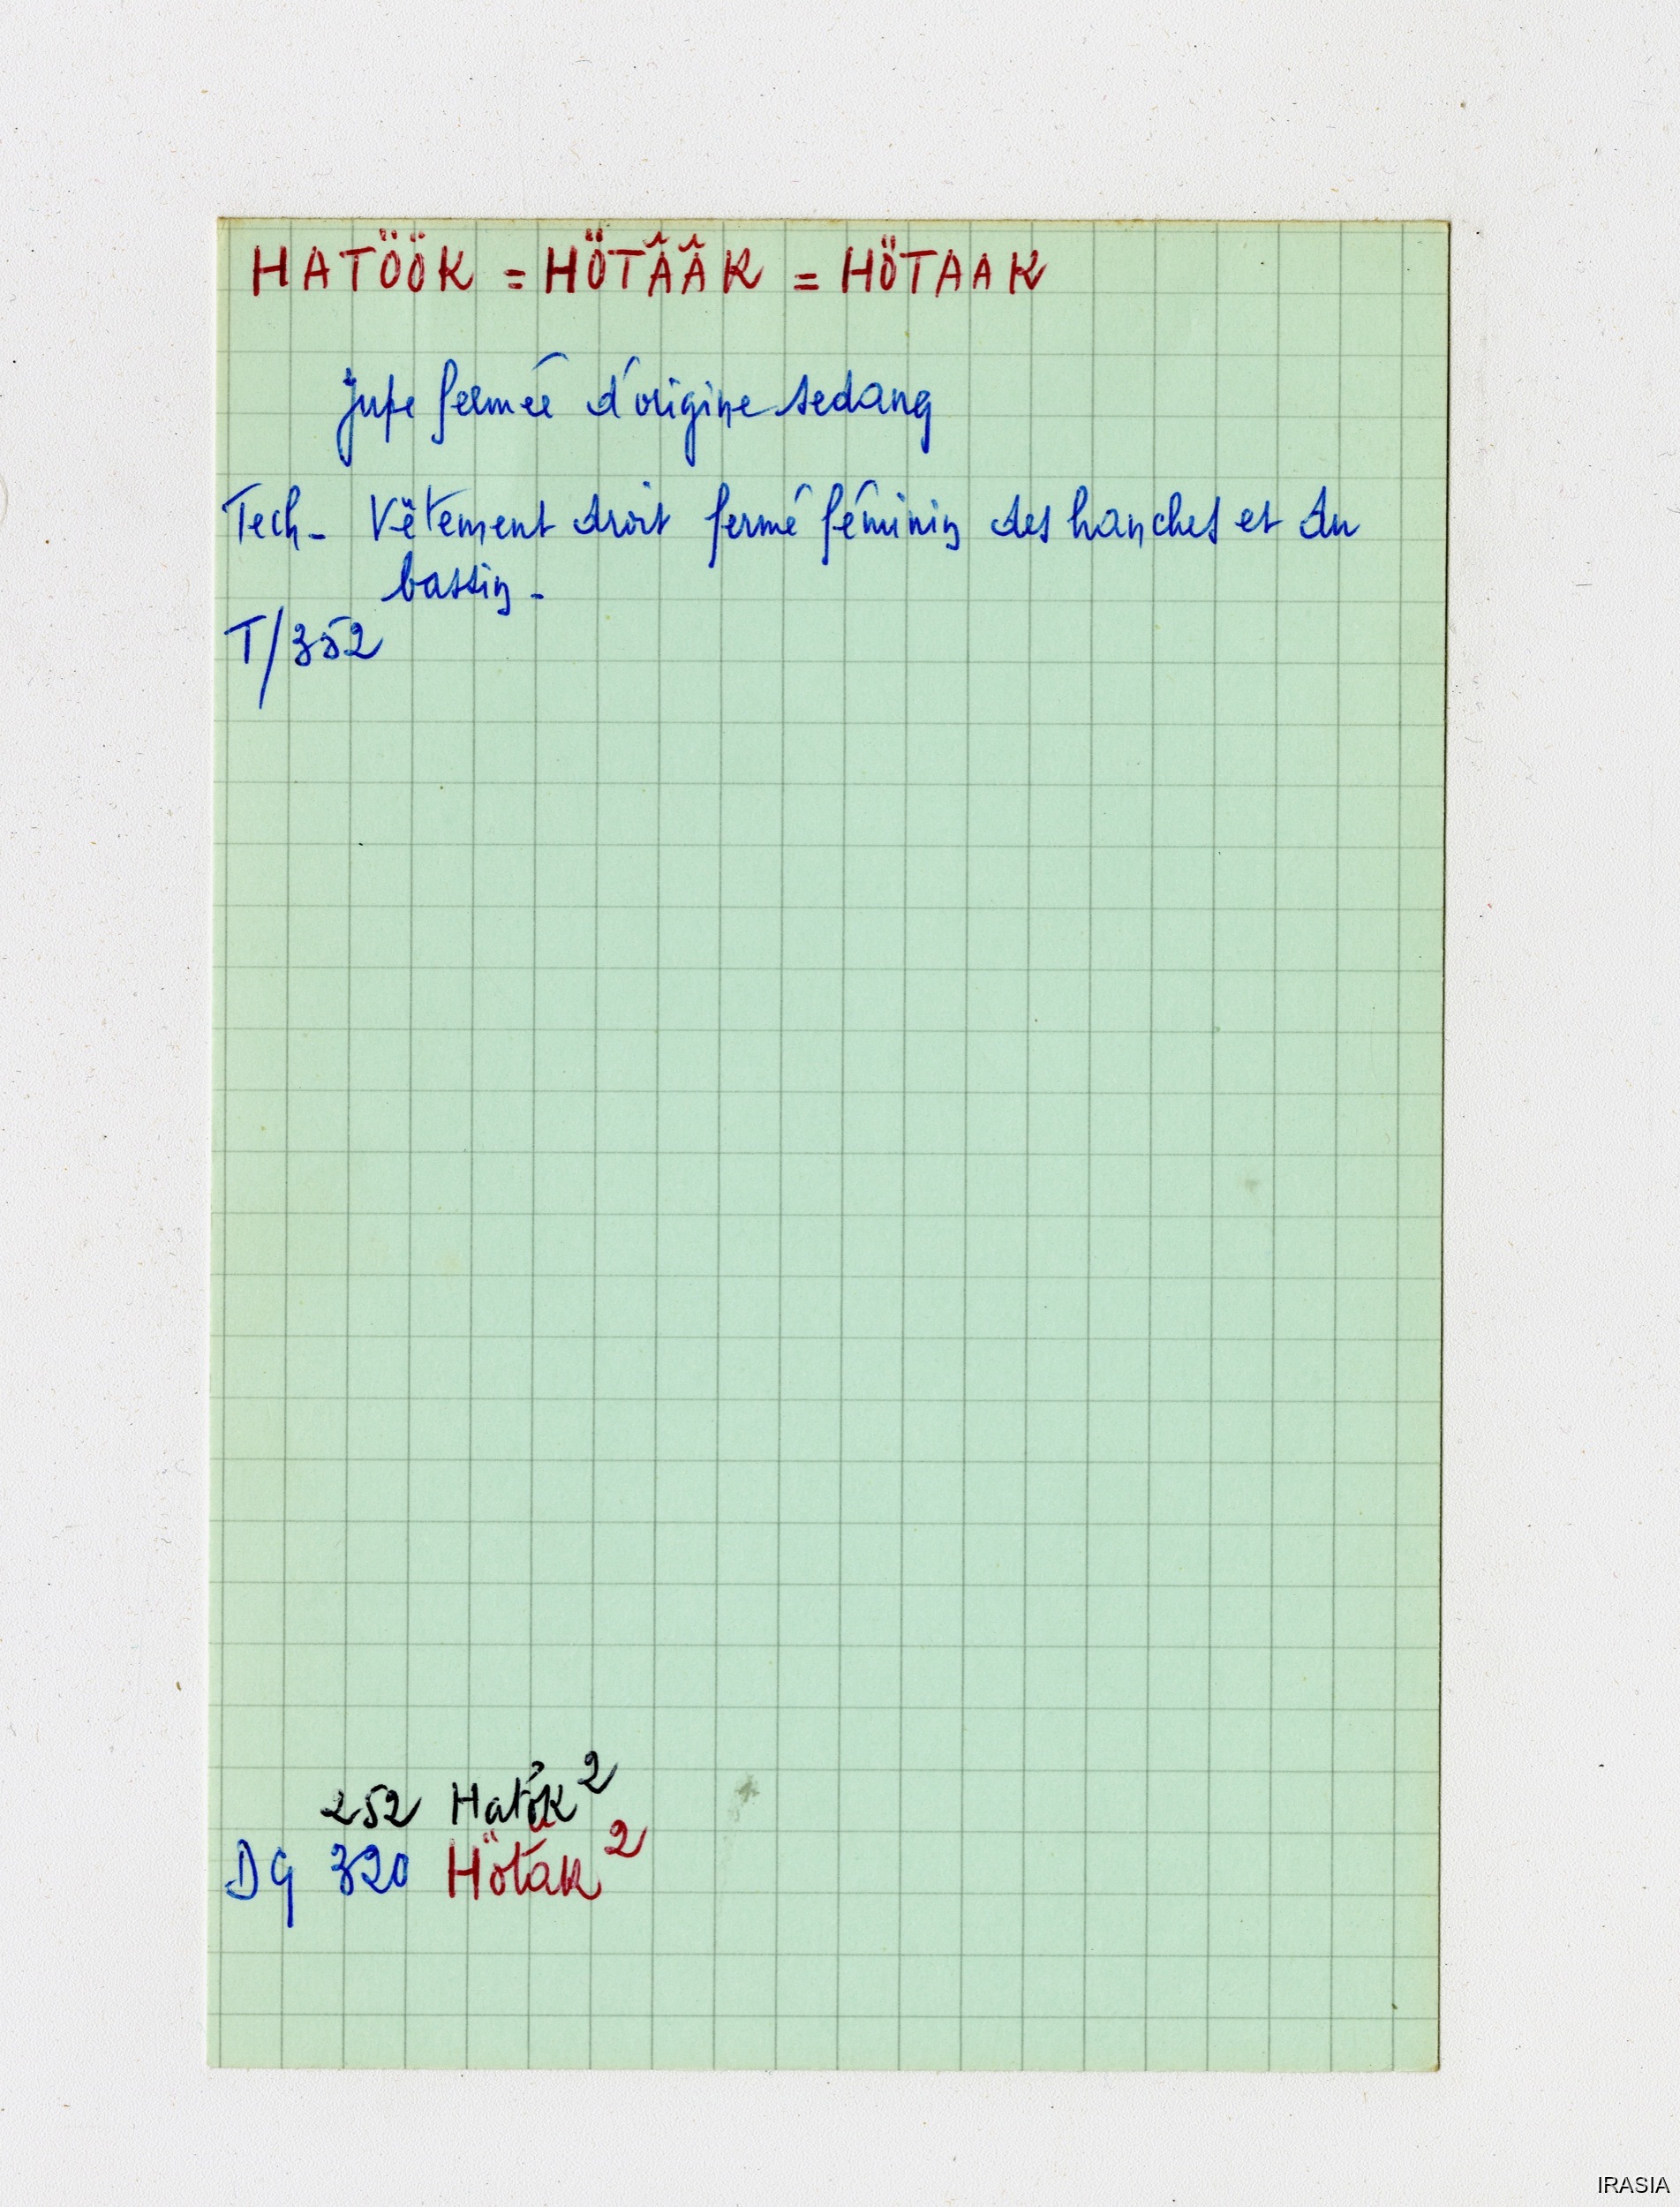 HATÖÖK = HÖTÂÂK = HÖTAAK
jupe fermée d'origine sedang
Tech - Vêtement droit fermé féminin des hanches et du
bassin -
T/352
252
DG 320 Hötak²
IRASIA